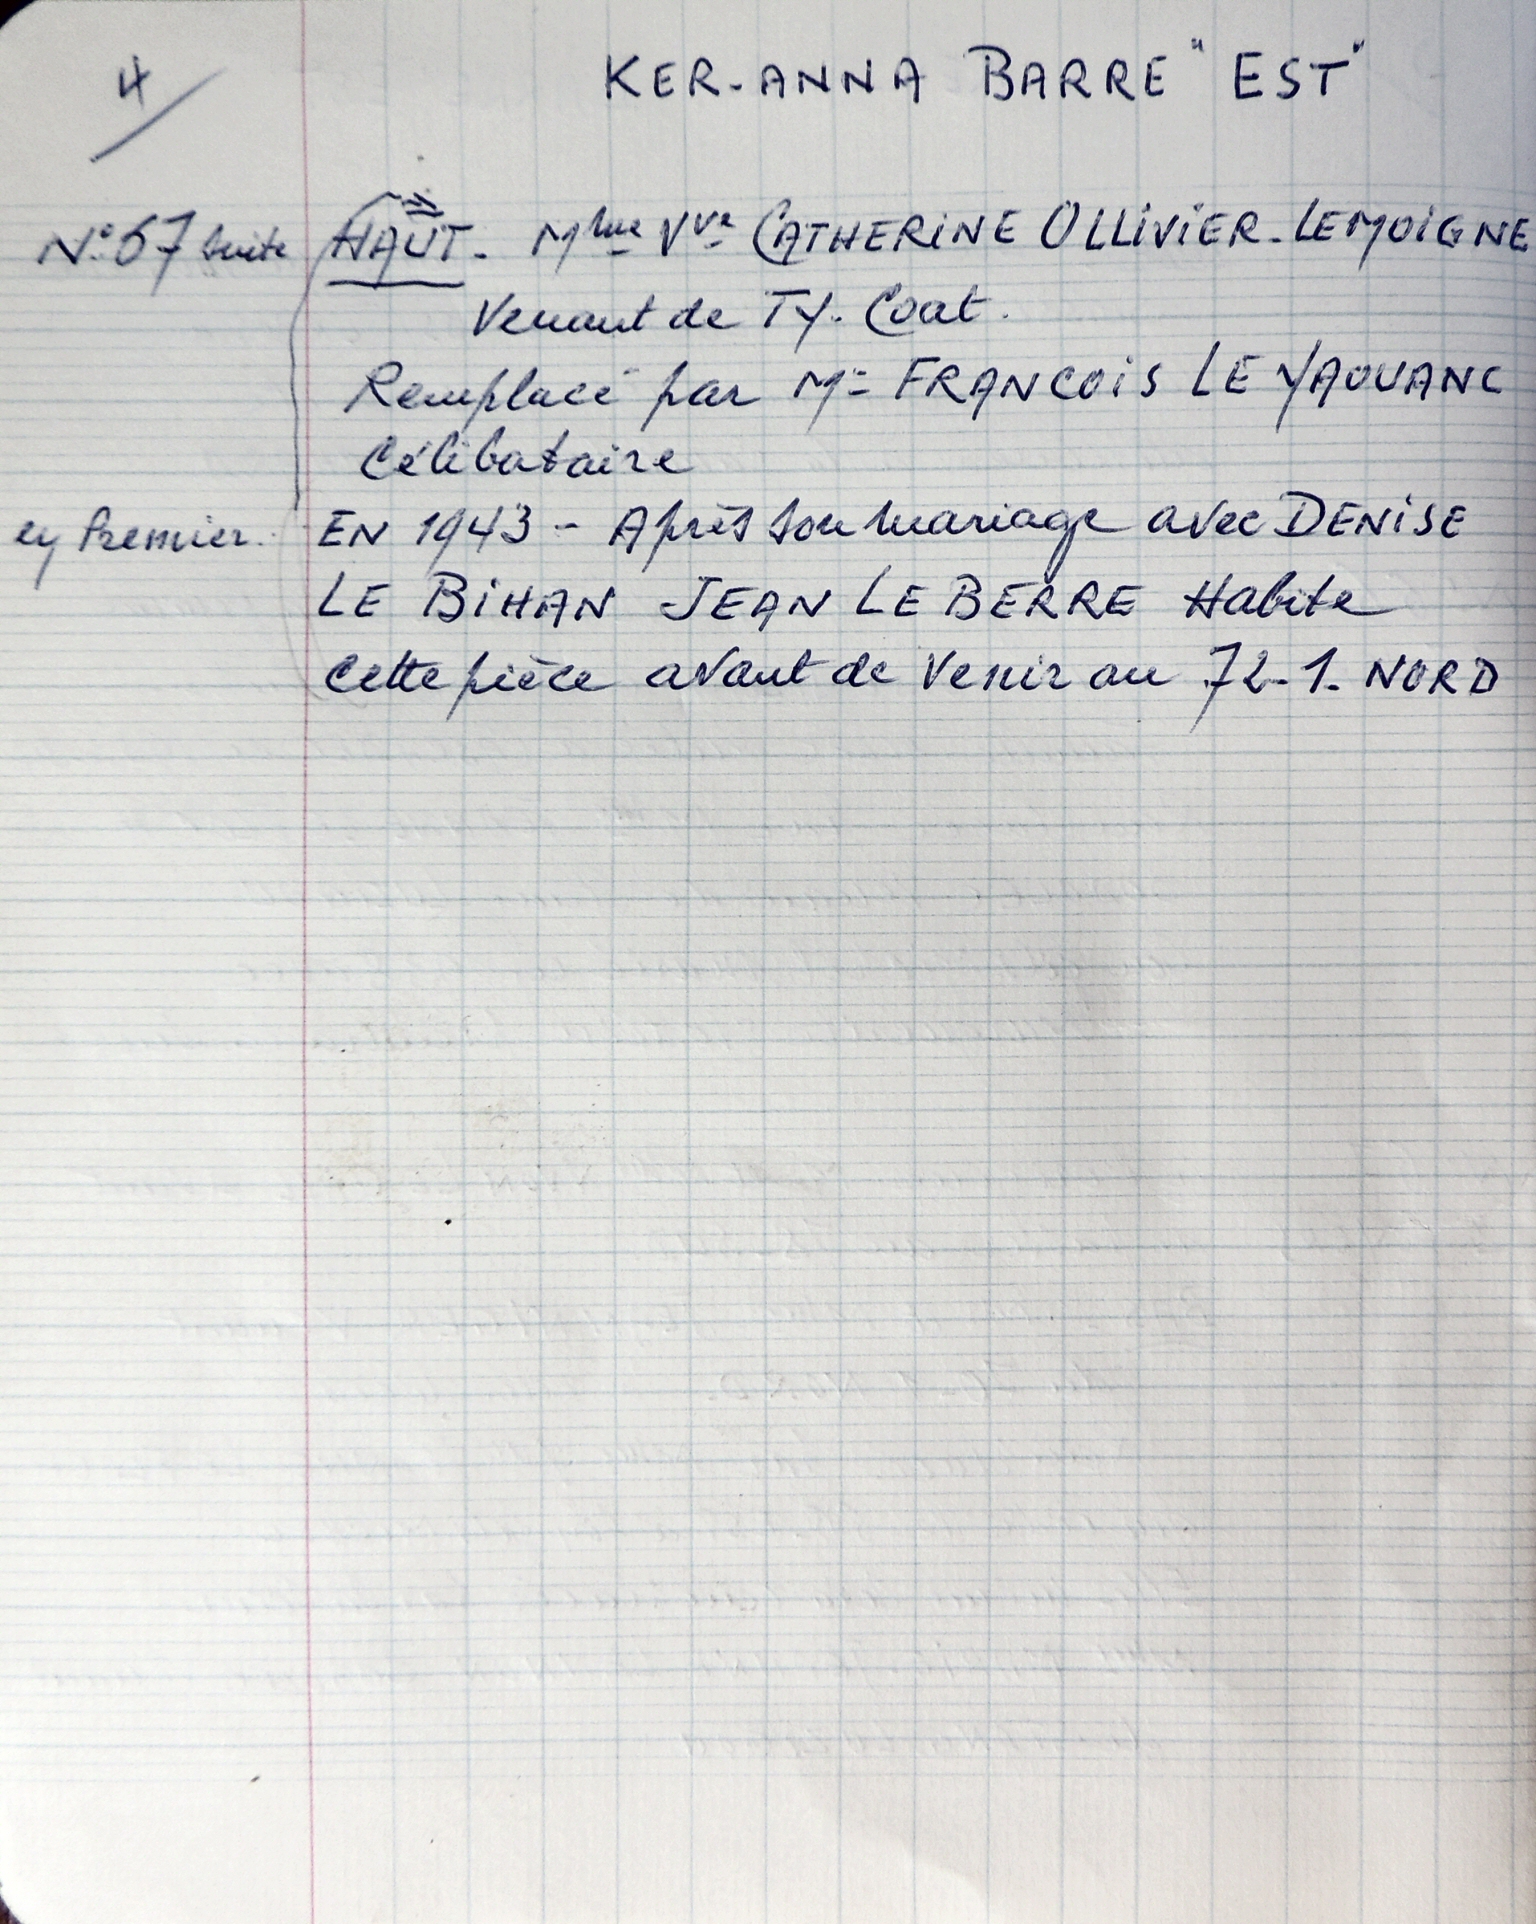 4
KER-ANNA BARRE "EST"
N° 67 suite HAUT. Mme Vve CATHERINE OLLIVIER-LEMOIGNE
Venant de TY-Coat.
Remplacé par Mr FRANCOIS LE YAOUANC
Célibataire
en Premier. EN 1943 - Après son mariage avec DENISE
LE BIHAN JEAN LE BERRE Habite
cette pièce avant de venir au 72-1. NORD